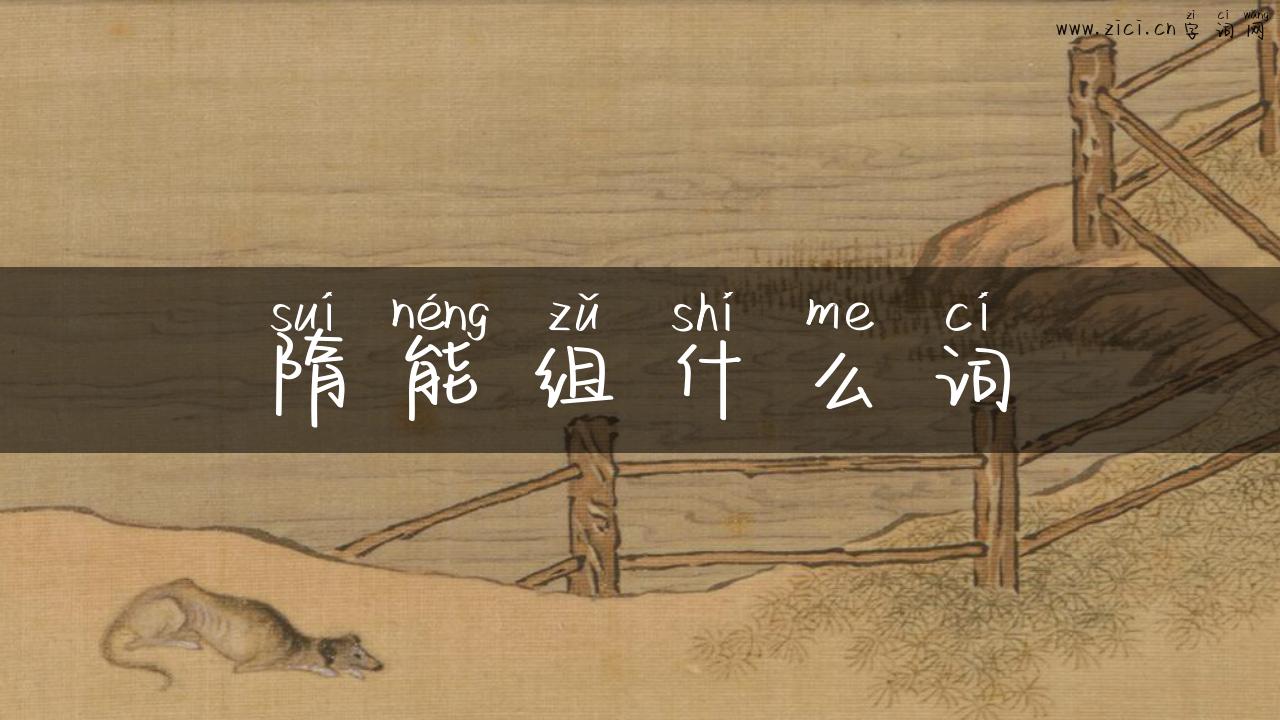 zi ci wang
www.zici.cn 字词网
suí néng zǔ shí me cí
隋能组什么词